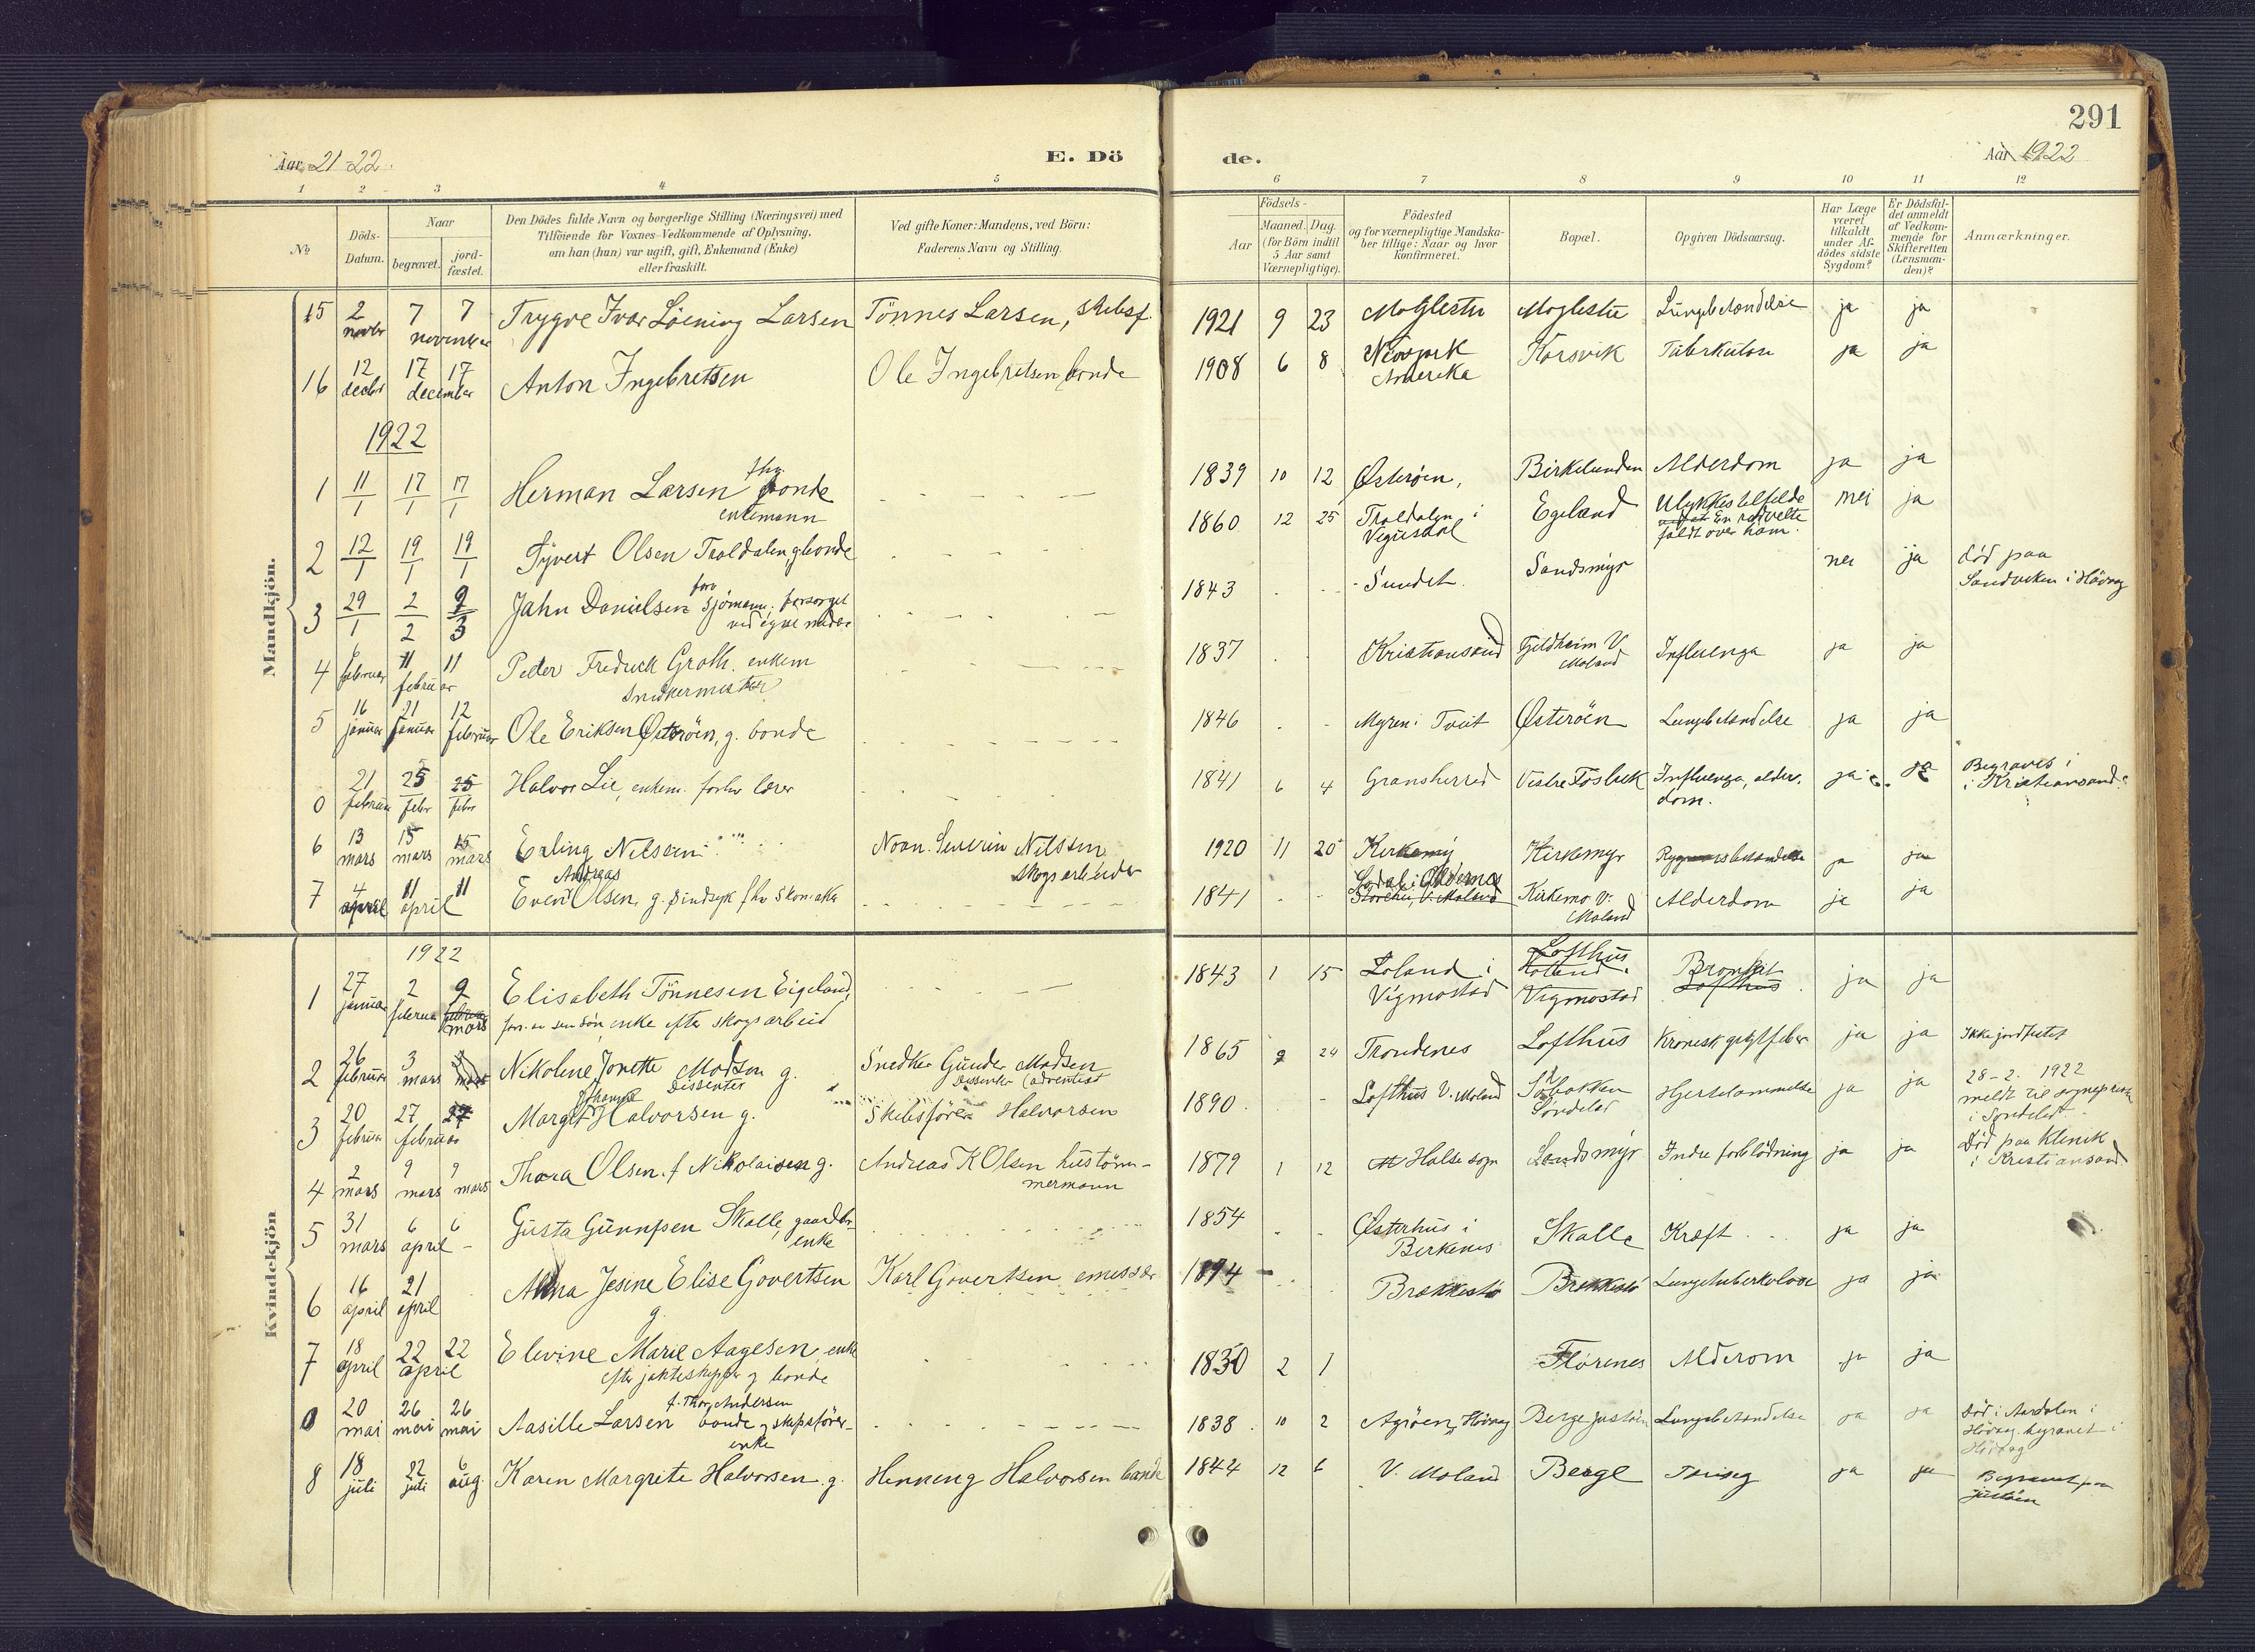 291
Aar 21-22
E. Dö
de.
Aar 1922
1 2 3 4 5 6 7 8 9 10 11 12
№
Döds-Datum.
Naar
begravet.
jord-fæstet.
Den Dödes fulde Navn og borgerlige Stilling (Næringsvei) med
Tilföiende for Voxnes Vedkommende af Oplysning,
om han (hun) var ugift, gift, Enkemand (Enke)
eller fraskilt.
Ved gifte Koner: Mandens, ved Börn:
Faderens Navn og Stilling.
Födsels-
Aar
Maaned. Dag.
(for Börn indtil
5 Aar samt
Værnepligtige).
Födested
og for værnepligtige Mandska-
ber tillige: Naar og hvor
konfirmeret.
Bopæl.
Opgiven Dödsaarsag.
Har Læge
været
tilkaldt
under Af-
dödes sidste
Sygdom?
Er Dödsfal-
det anmeldt
af Vedkom-
mende for
Skifteretten
(Lensman-
den)?
Anmærkninger.
Mandkjön.
15 2 novbr 7 7 november Trygve Ivar Löening Larsen Tönnes Larsen, skibsf. 1921 9 23 Moglestu Moglestu Lungebetændelse ja ja
16 12 decbr 17 17 december Anton Ingebretsen Ole Ingebretsen bonde 1908 6 8 Newyork Amerika Korsvik Tuberkulose ja ja
1922
1 11/1 17/1 17/1 Herman Larsen fhv. bonde enkemann 1839 10 12 Østeröen, Birkelunden Alderdom ja ja
2 12/1 19/1 19/1 Syvert Olsen Troldalen g bonde 1860 12 25 Troldalen i Vegusdal Egeland Ulykkestilfelde En rodvelte faldt over ham. nei ja
3 29/1 2/2 9/3 Jahn Danielsen forv sjömann, forsörget ved egne midler 1843 Sundet Sandsmyr nei ja död paa Sandviken i Hövag
4 februar 11 11 februar Peder Fredrick Groth. enkem Snedkermester 1837 Kristiansand Fjeldheim V. Moland Influenza ja ja
5 16 januar 21 januar 12 februar Ole Eriksen Østeröen, g. bonde 1846 Myren i Tveit Østeröen Lungebetændelse ja ja
0 21 februar 25 febr 25 febr Halvor Lie, enkem. forhv lærer 1841 6 4 Gransherred Vestre Fosbæk Influenza, alderdom. ja ja Begraves i i Kristiansand
6 13 mars 15 mars 15 mars Erling Nilsen Noan. Severin Nilssen skogsarbeider 1920 11 20 Kirkemyr Kirkemyr ja ja
7 4 april 11 april 11 Even Andreas Olsen, g. sindsyk fhv skomaker 1841 Kirkemo V. Moland Alderdom ja ja
Kvindekjön
1922
1 27 januar 2 februar 9 mars Elisabeth Tönnesen Eigeland, fors. av sin sön, enke efter skogsarbeid 1843 1 15 Loland i Vigmostad Lofthus Loland Vigmostad Bronkit Lofthus ja ja
2 26 februar 3 mars Nikoline Jonette Madsen g. Dissenter Snedker Gunder Madsen Dissenter (adventist 1865 9 24 Trondenes Lofthus Kronisk gigtfeber ja ja Ikke jordfæstet
3 20 februar 27 27 februar Margit Johanne Halvorsen g. Skibsförer Halvorsen 1890 Lofthus V. Moland Söndeled Hjertelammelse ja ja 28-2. 1922 meldt til sogneprest i Söndeled
4 2 mars 9 mars 9 mars Thora Olsen. f Nikolaisen g. Andreas K Olsen hustömmermann 1879 1 12 Halse sogn Sandsmyr Indre forblödning ja ja Död paa klinik i Kristiansand
5 31 mars 6 april 6 Gusta Gunnsen Skalle, gaardbr. enke 1854 Østerhus i Birkenes Skalle Kræft ja ja
6 16 april 21 april Anna Jesine Elise Govertsen g Karl Govertsen emissær 1894 Brækkestö Brækkestö Lungetuberkulose ja ja
7 18 april 22 22 april Elevine Marie Aagesen, enke efter jakteskipper og bonde 1830 2 1 Flörenes Alderom ja ja
0 20 mai 26 mai 26 mai Aasille Larsen f. Thor Andersen bonde og skipsförer-enke 1838 10 2 Agröen, Hövag Berge Justöen Lungebetændelse ja ja Död i Aardalen i Hövag. begravet i Hövag
8 18 juli 22 juli 6 aug. Karen Margrete Halvorsen g. Henning Halvorsen bonde 1844 12 6 V. Moland Berge ja ja Begravet paa Justöen